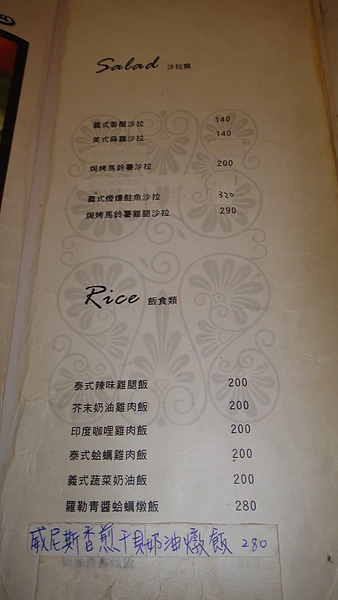 Salad 沙拉類
義式香醋沙拉 140
美式蒔蘿沙拉 140
焗烤馬鈴薯沙拉 200
義式煙燻鮭魚沙拉 320
焗烤馬鈴薯雞腿沙拉 290
Rice 飯食類
泰式辣味雞腿飯 200
芥末奶油雞肉飯 200
印度咖哩雞肉飯 200
泰式蛤蠣雞肉飯 200
義式蔬菜奶油飯 200
羅勒青醬蛤蠣燉飯 280
威尼斯香煎干貝奶油燉飯 280